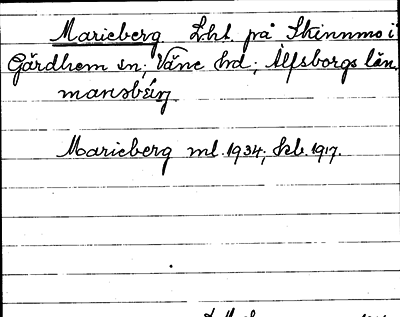 Marieberg Lht. på Skinnmo i
Gärdhem sn; Väne hd; Älfsborgs län.
Marieberg ml. 1934; kb. 1917.